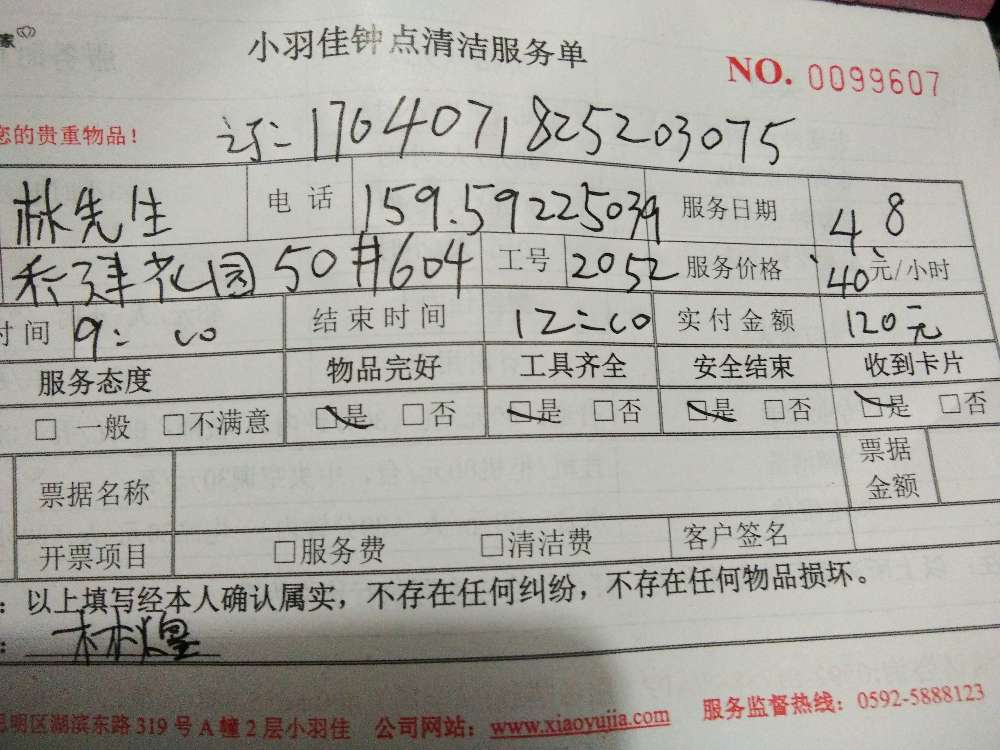 家
小羽佳钟点清洁服务单
NO. 0099607
您的贵重物品！
订：17040718252 03075
林先生 电话 159.59225039 服务日期 4.8
花园50#604 工号 2052 服务价格 40元/小时
时间 9:00 结束时间 12:00 实付金额 120元
服务态度 物品完好 工具齐全 安全结束 收到卡片
□一般 □不满意 □是 □否 □是 □否 □是 □否 □是 □否
票据名称 票据金额
开票项目 □服务费 □清洁费 客户签名
：以上填写经本人确认属实，不存在任何纠纷，不存在任何物品损坏。
：林煌
思明区湖滨东路319号A幢2层小羽佳 公司网站：www.xiaoyujia.com 服务监督热线：0592-5888123